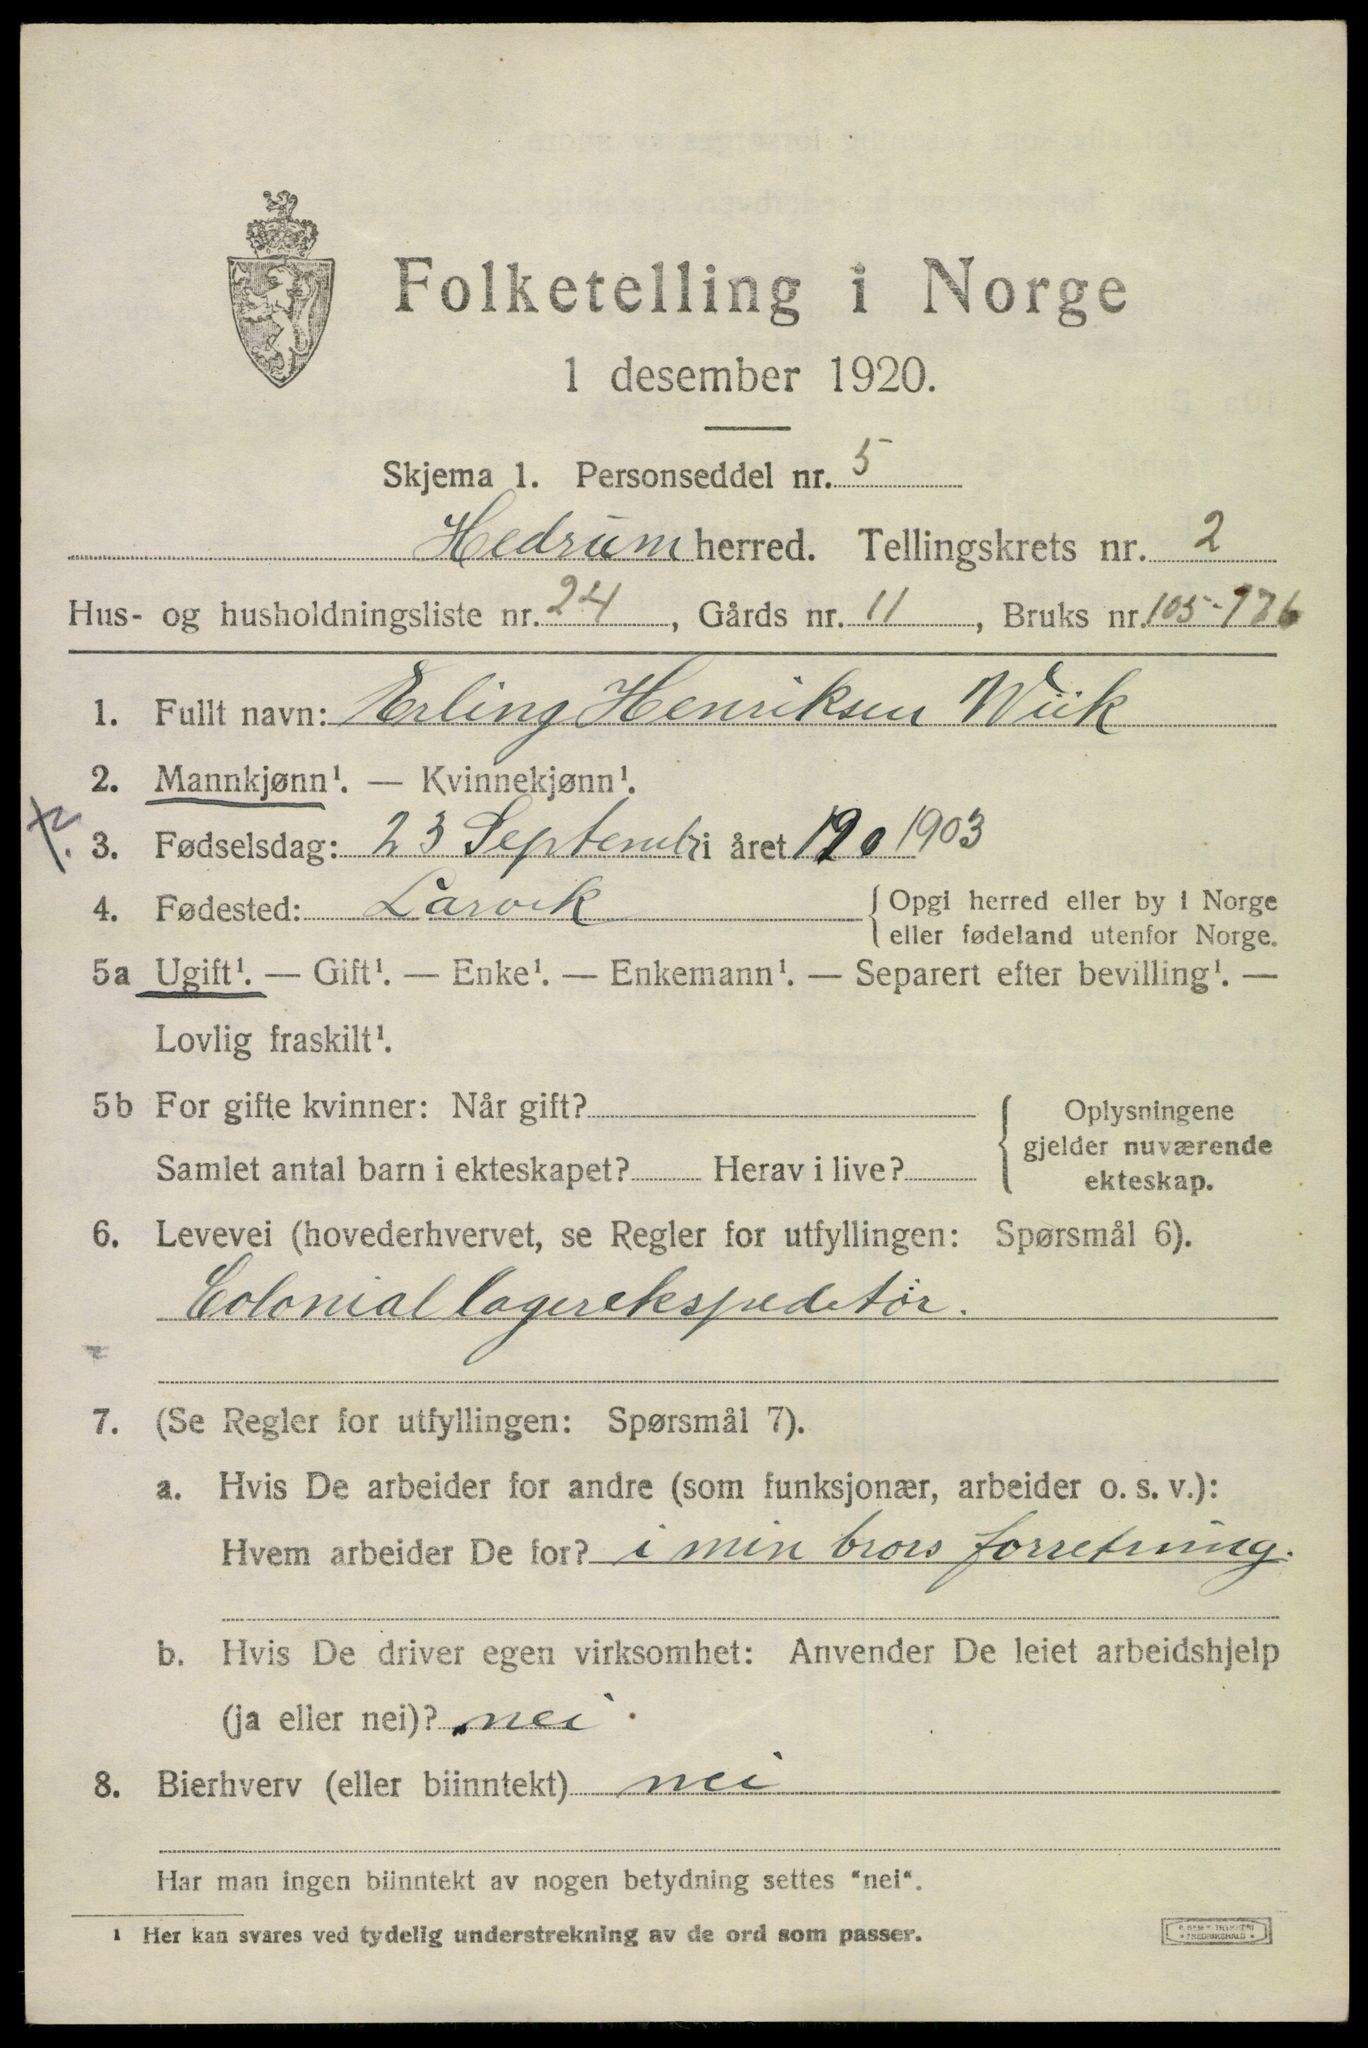 Folketelling i Norge
1 desember 1920.
Skjema 1. Personseddel nr. 5
Hedrum herred. Tellingskrets nr. 2
Hus- og husholdningsliste nr. 24, Gårds nr. 11, Bruks nr. 105-126
1. Fullt navn: Erling Henriksen Wiik
2. Mannkjønn¹. — Kvinnekjønn¹.
3. Fødselsdag: 23 Septembr i året 190 1903
4. Fødested: Larvik { Opgi herred eller by i Norge
eller fødeland utenfor Norge.
5a Ugift¹. — Gift¹. — Enke¹. — Enkemann¹. — Separert efter bevilling¹. —
Lovlig fraskilt¹.
5b For gifte kvinner: Når gift? { Oplysningene
gjelder nuværende
Samlet antal barn i ekteskapet? Herav i live? ekteskap.
6. Levevei (hovederhvervet, se Regler for utfyllingen: Spørsmål 6).
Colonial lagerekspeditør.
7. (Se Regler for utfyllingen: Spørsmål 7).
a. Hvis De arbeider for andre (som funksjonær, arbeider o. s. v.):
Hvem arbeider De for? i min brors forretning.
b. Hvis De driver egen virksomhet: Anvender De leiet arbeidshjelp
(ja eller nei)? nei
8. Bierhverv (eller biinntekt) nei
Har man ingen biinntekt av nogen betydning settes "nei".
¹ Her kan svares ved tydelig understrekning av de ord som passer.